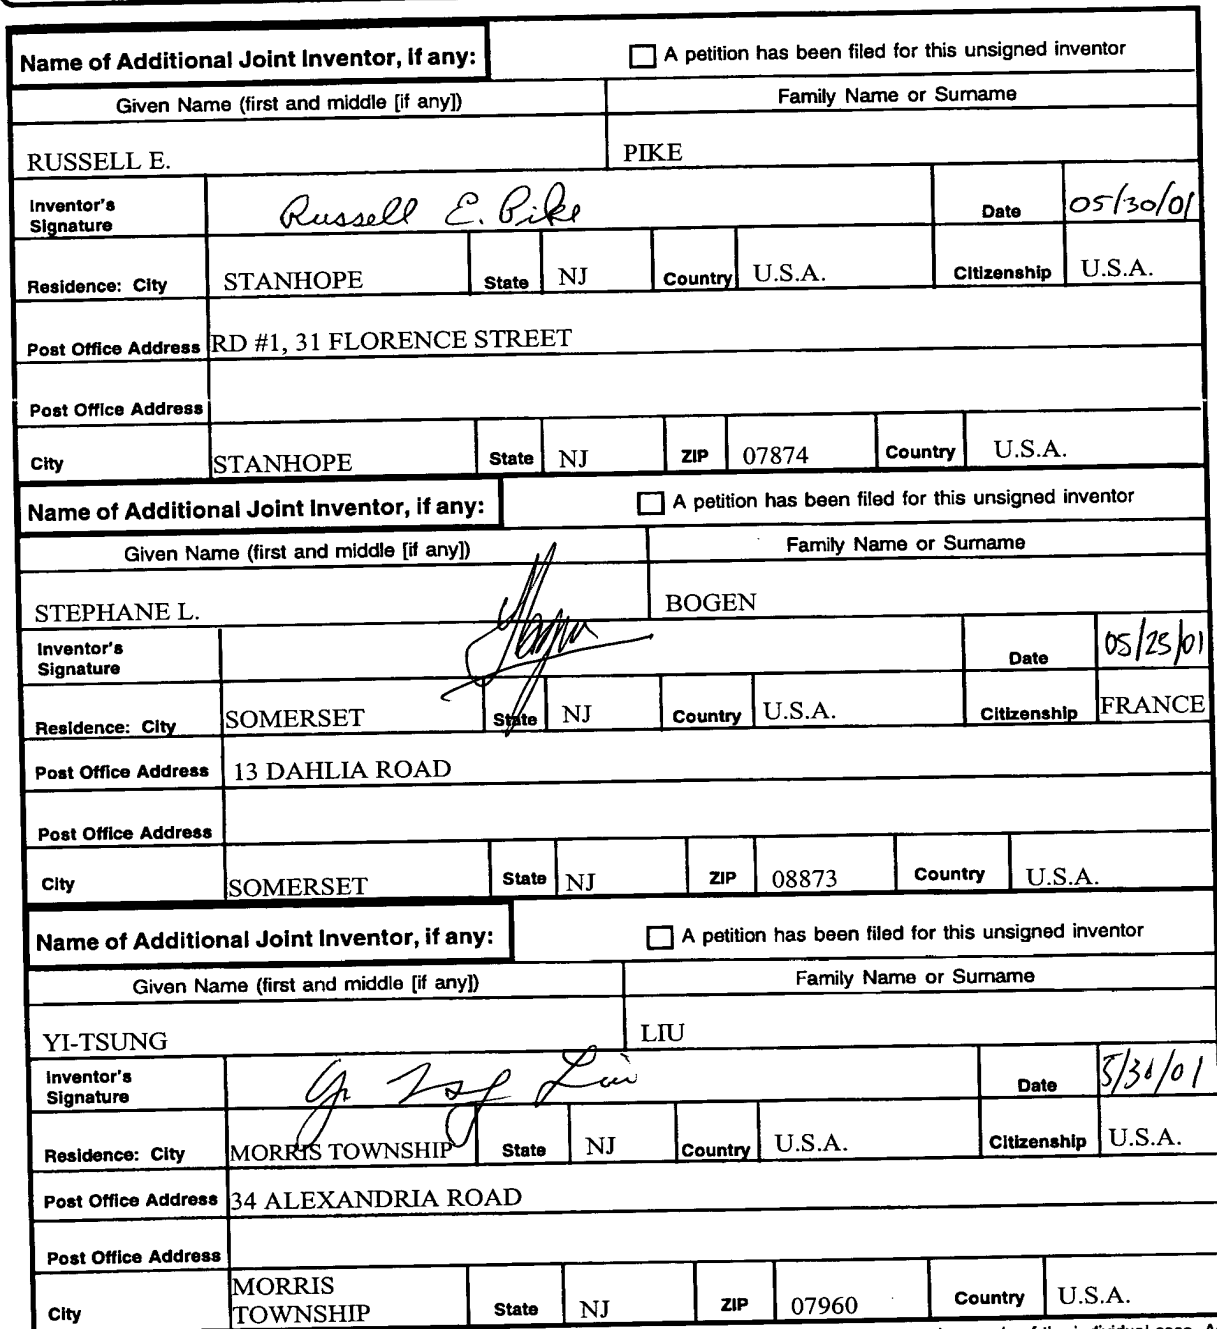 Name of Additional Joint Inventor, if any: A petition has been filed for this unsigned inventor
Given Name (first and middle [if any]) Family Name or Surname
RUSSELL E. PIKE
Inventor's Signature Russell E. Pike Date 05/30/01
Residence: City STANHOPE State NJ Country U.S.A. Citizenship U.S.A.
Post Office Address RD #1, 31 FLORENCE STREET
Post Office Address
City STANHOPE State NJ ZIP 07874 Country U.S.A.
Name of Additional Joint Inventor, if any: A petition has been filed for this unsigned inventor
Given Name (first and middle [if any]) Family Name or Surname
STEPHANE L. BOGEN
Inventor's Signature Date 05/25/01
Residence: City SOMERSET State NJ Country U.S.A. Citizenship FRANCE
Post Office Address 13 DAHLIA ROAD
Post Office Address
City SOMERSET State NJ ZIP 08873 Country U.S.A.
Name of Additional Joint Inventor, if any: A petition has been filed for this unsigned inventor
Given Name (first and middle [if any]) Family Name or Surname
YI-TSUNG LIU
Inventor's Signature Yi Tsung Liu Date 5/31/01
Residence: City MORRIS TOWNSHIP State NJ Country U.S.A. Citizenship U.S.A.
Post Office Address 34 ALEXANDRIA ROAD
Post Office Address
City MORRIS TOWNSHIP State NJ ZIP 07960 Country U.S.A.